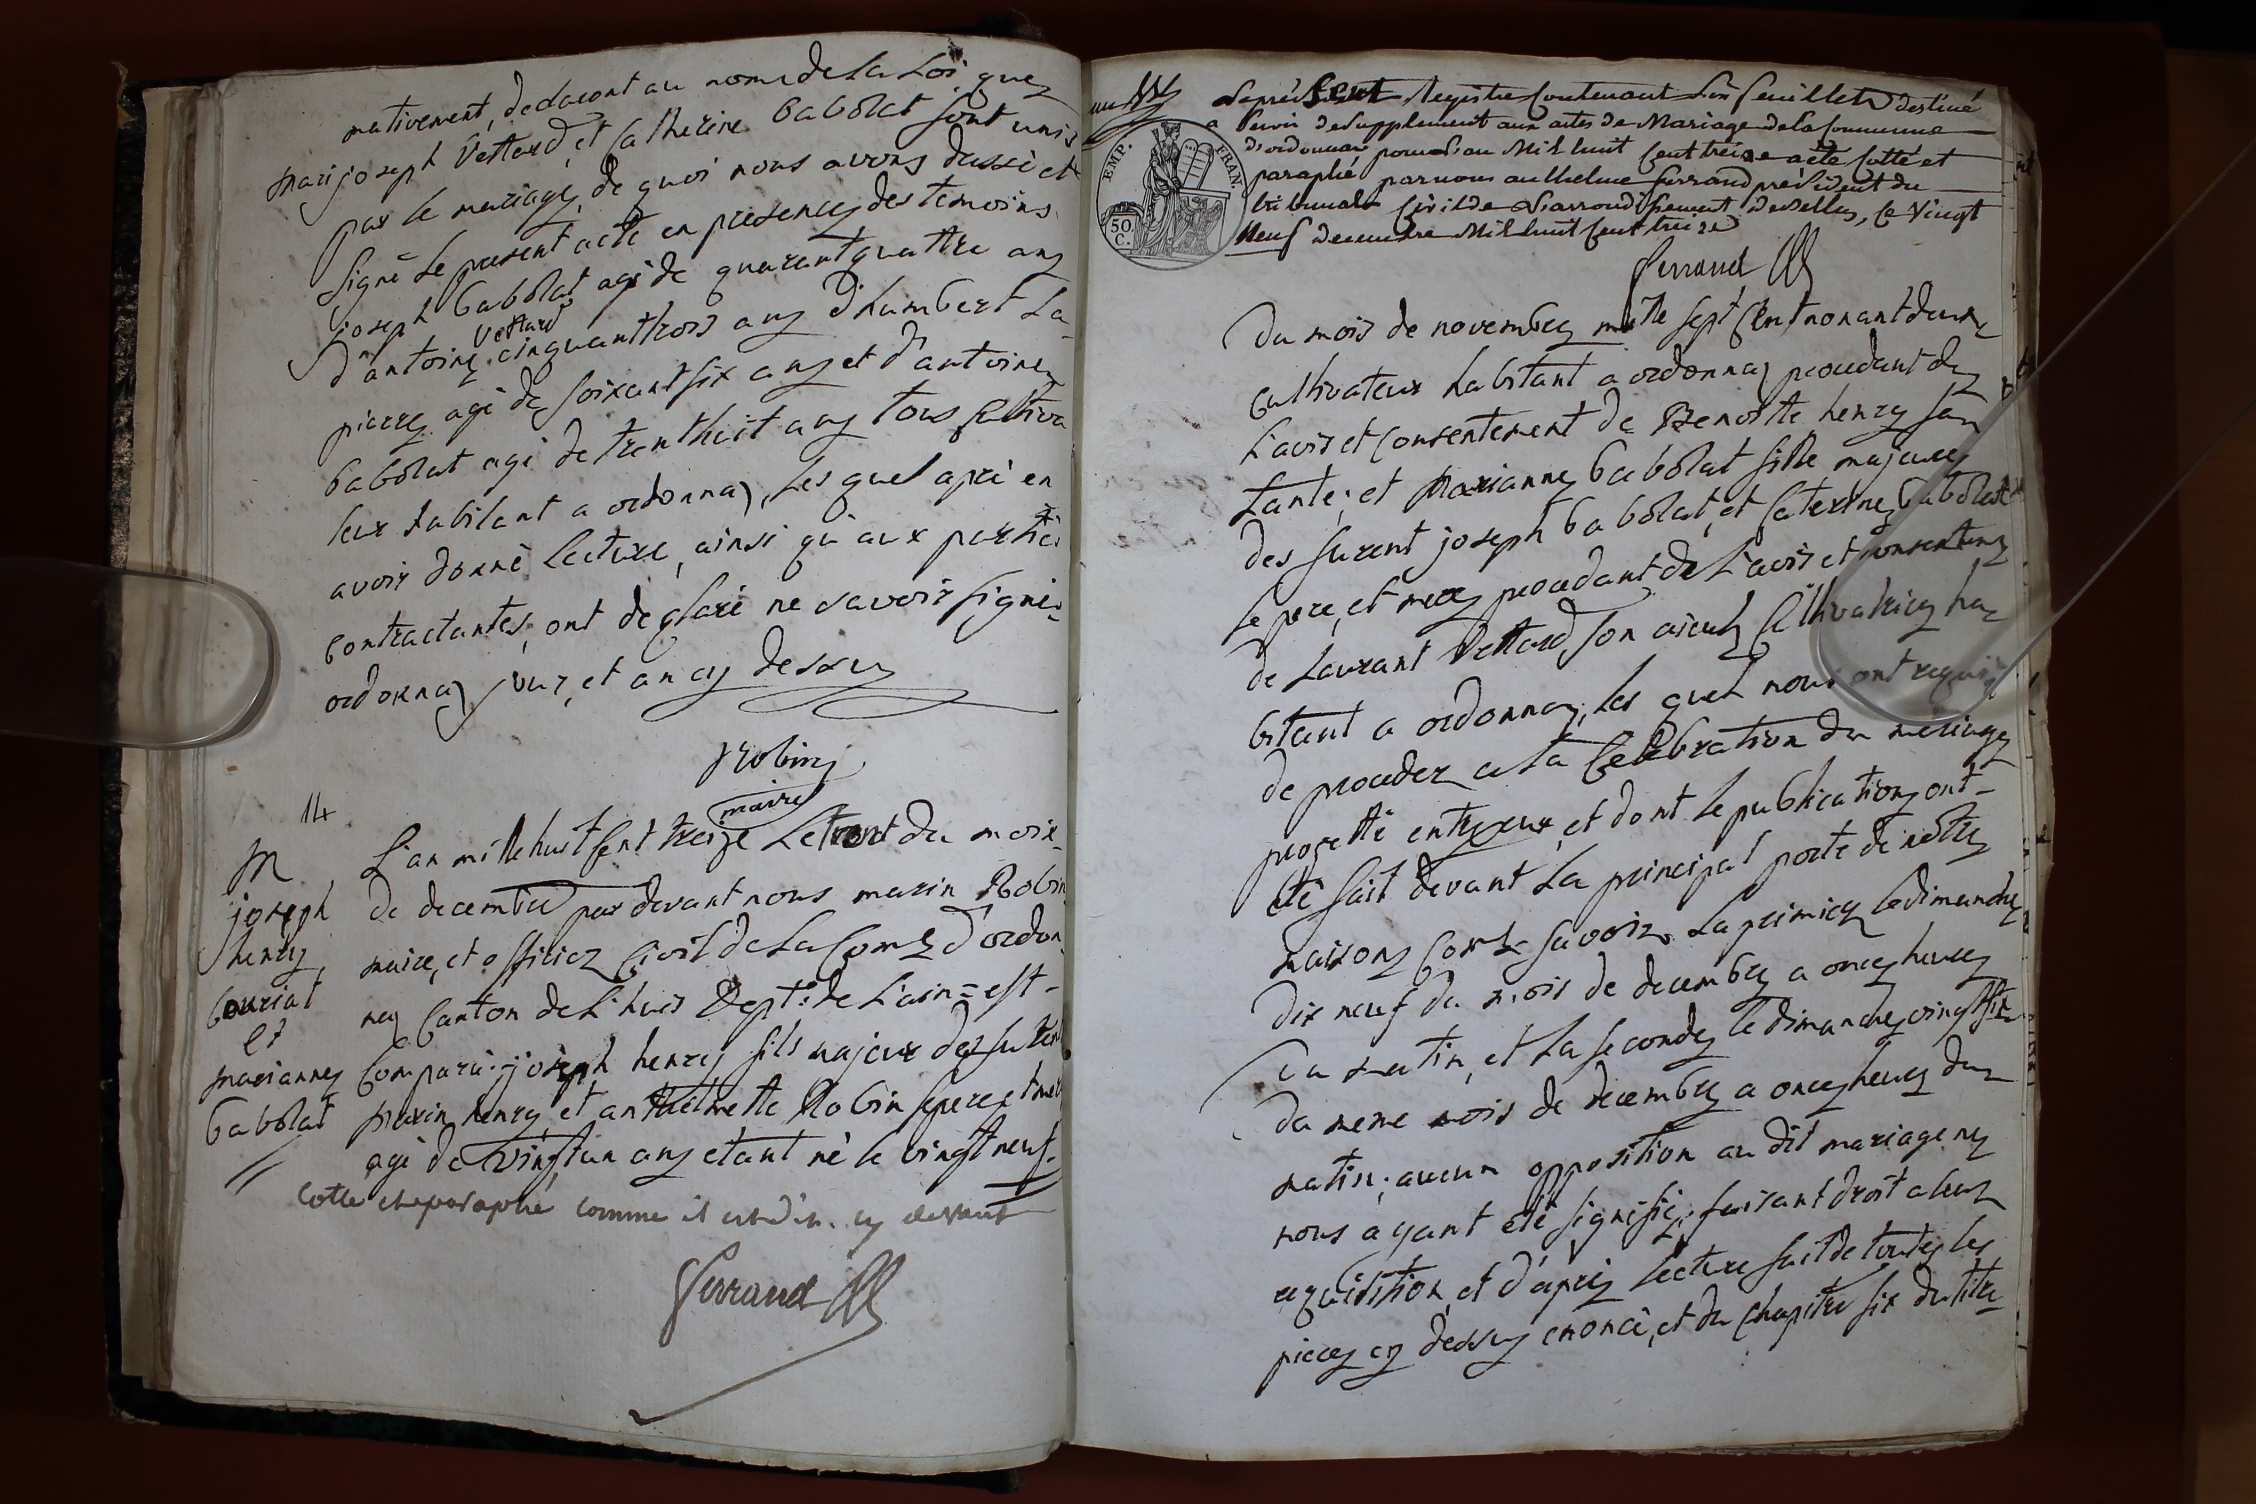 mativement, declaront au nom de la Loi que
mari joseph Vettard et Catherine babolat sont unis
par le mariage, de quoi nous avons dressé et
signé le present acte en presence des temoins
joseph babolat agé de quarant quattre ans
Vettard
d'antoine cinquant trois ans d'humbert La-
pierre agé de soixant six ans et d'antoine
babolat agé de trent huit ans tous Cultiva
teur habitant a ordonnaz, Les quel aprè en
avoir donné Lecture, ainsi qu'aux parties
contractantes, ont declaré ne savoir signé
ordonnaz jour, et an cy dessus
Robin
maire
14
M
joseph
henry
bouriat
et
marianne
babolat
L'an mille huit sent treize Le trent du mois
de decembre par devant nous marin Robin
maire, et officier Civil de La Com.e d'ordon
naz Canton de L'huis Dept. de L'ain = est
Comparu joseph henry fils majeur des furent
marin henry et anthelmette Robin se pere et mere
agé de vingt un ans etant né le vingt neuf
Cotté et paraphé comme il est dit cy devant
Ferrand
un
EMP. FRAN.
50 C.
Le présent Registre Contenant Six feuillets destiné
a Servir de Supplement aux actes de Mariage de la Commune
d'ordonnaz pour L'an Mil huit Cent treize a été Cotté et
paraphé par nous anthelme ferrand président du
tribunal Civil de L'arrondissement de Belley, Ce Vingt
Neuf Decembre Mil huit Cent treize
Ferrand
Du mois de novembre mille sept Cent nonant deux
Cultivateur habitant a ordonnaz procedant de
L'avis et Consentement de Benoitte henry sa
tante; et Marianne babolat fille majeure
des furent joseph babolat, et Caterine babolat
se pere, et mere procedant de L'avis et consentem
de Laurant Vettard son aieul Cultivatrice ha
bitant a ordonnaz, les quel nous ont requis
de proceder a La Celebration du mariage
progetté entre eux, et dont le publications ont
été fait devant La principal porte de nôtre
maison Com.e Savoir La premiere le dimanche
dix neuf du mois de decembre a once heures
Du matin, et La seconde le dimanche vingt six
du meme mois de decembre a once heures du
matin; aucun opposition au dit mariage ne
nous ayant été signifié, faisant droit a leur
requisition, et d'après Lecture fait de toutes les
pieces cy dessus enoncé, et du chapitre six du titre